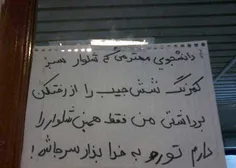 دانشجوی محترمی که شلوار سبز
کمرنگ شش جیب را از رختکن
برداشتی من فقط همین شلوار را
دارم تورو به خدا بذار سرجاش!